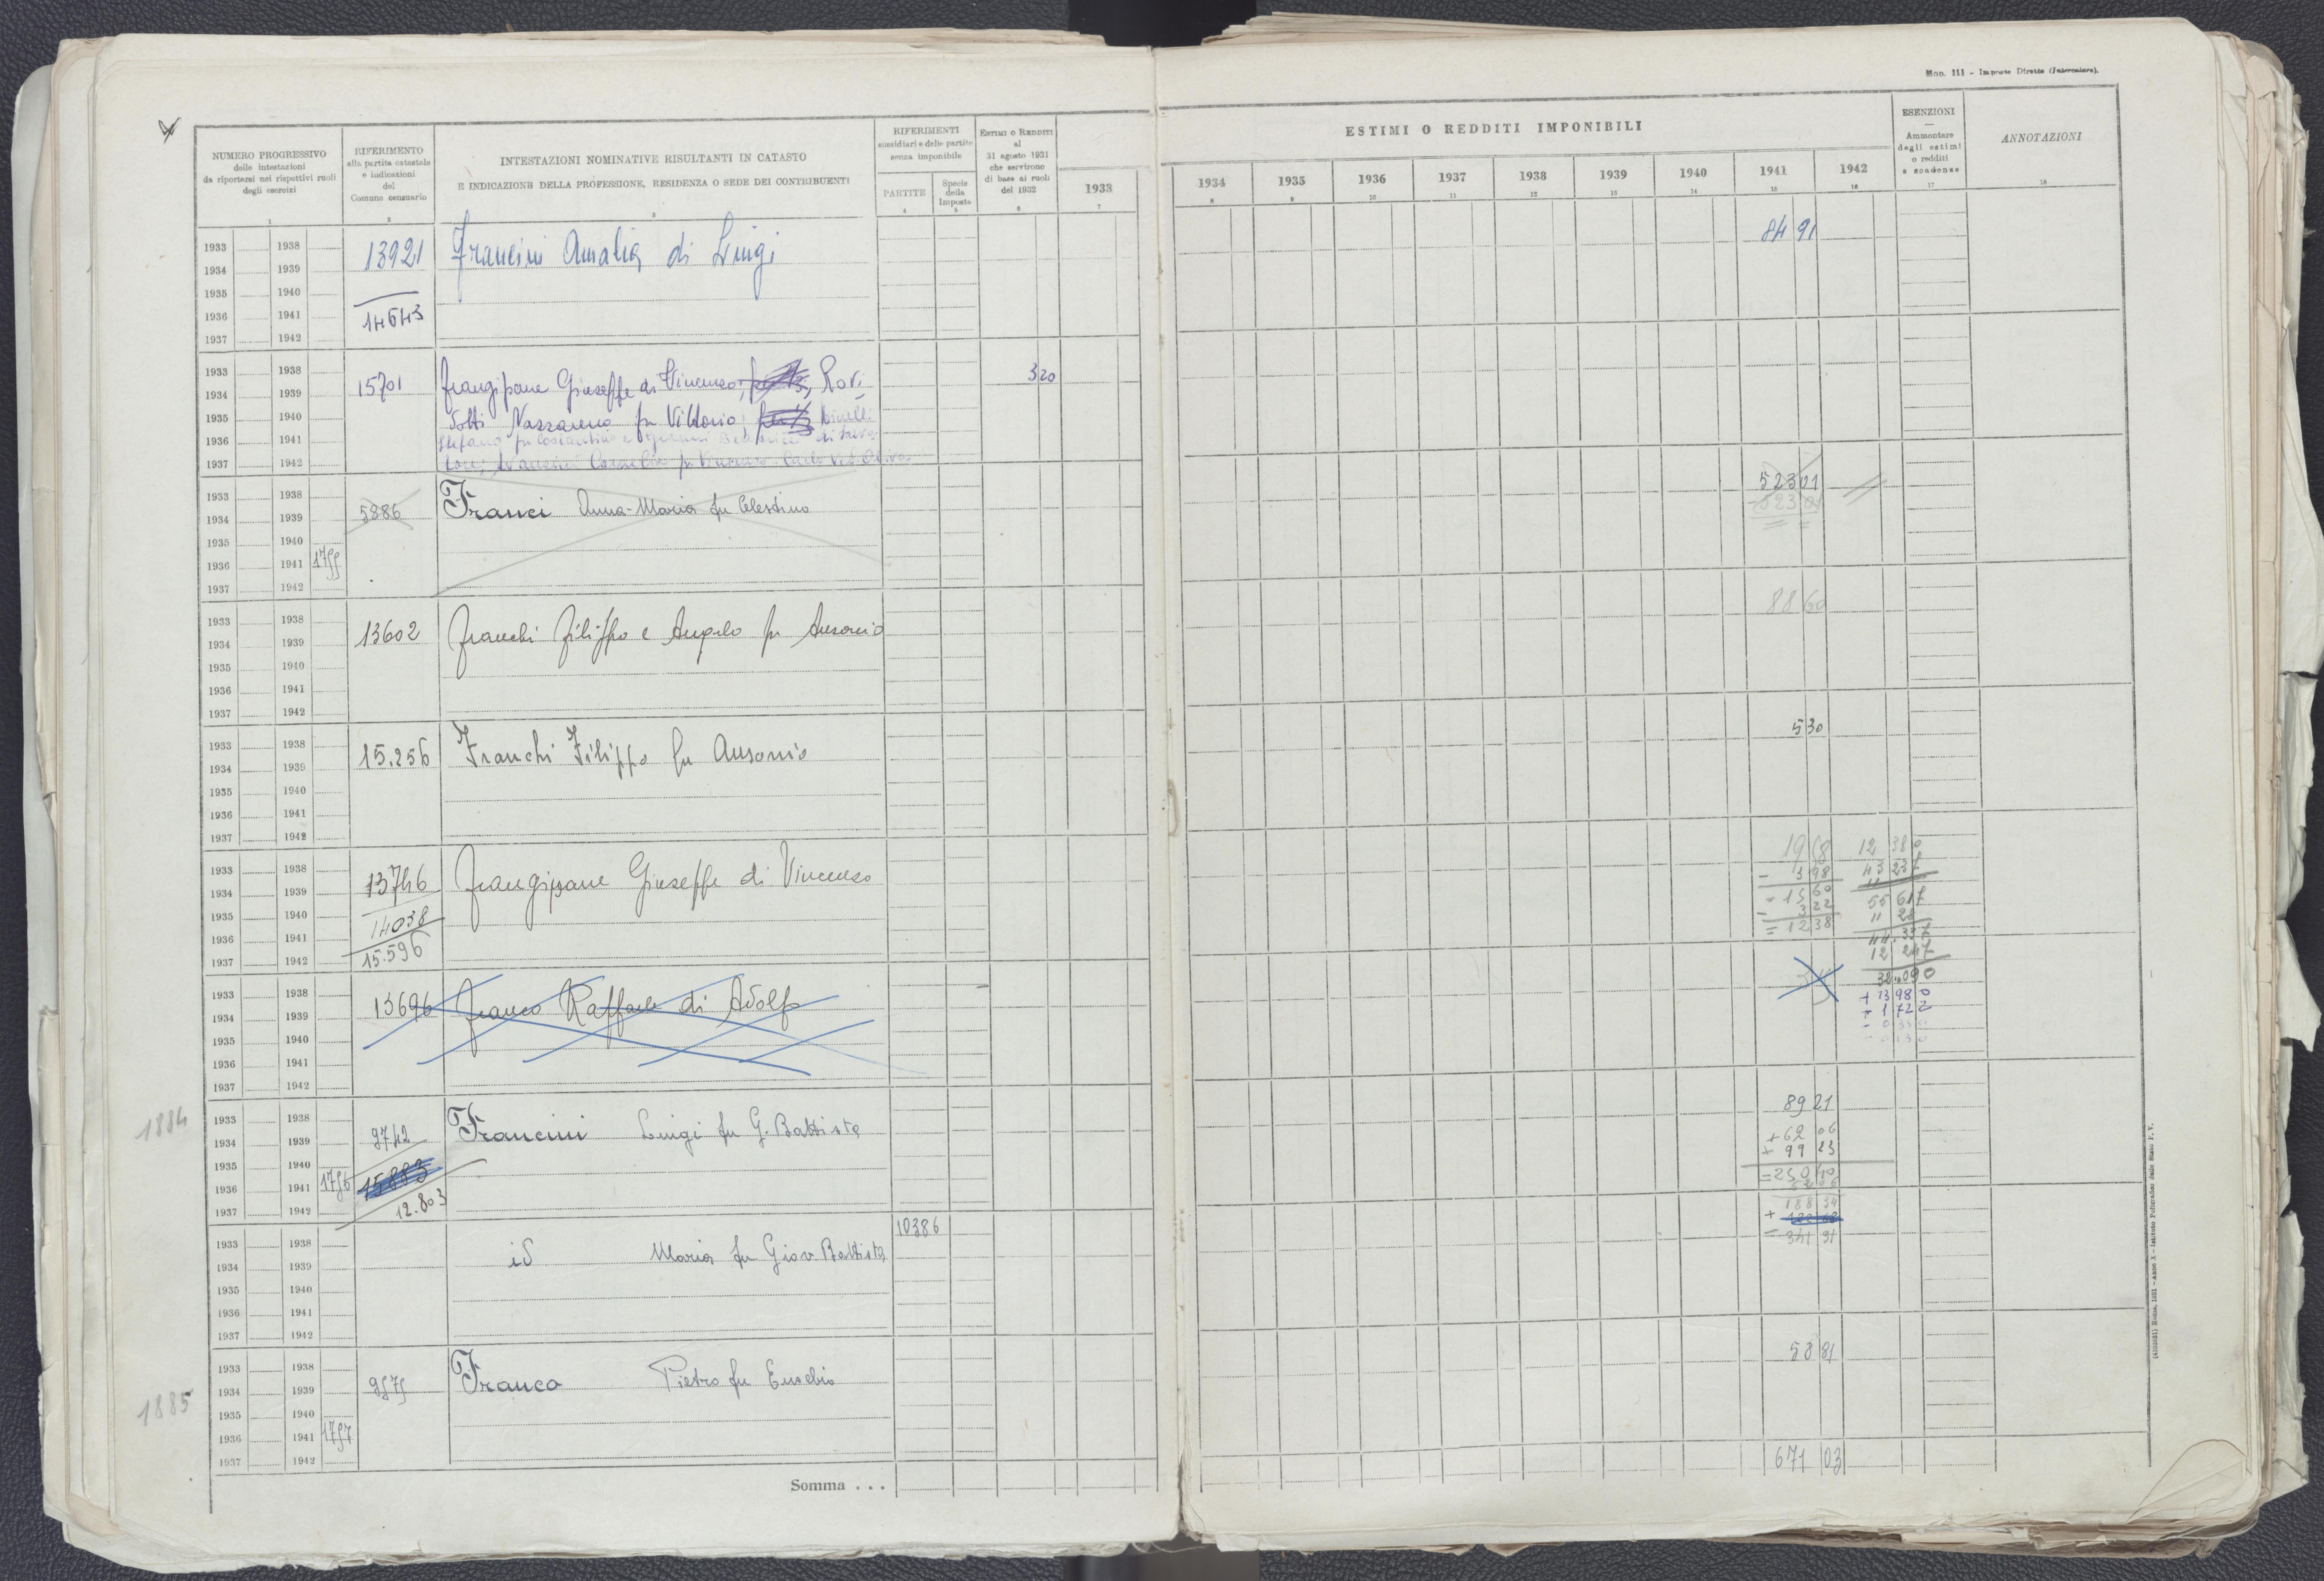 Mod. 111 - Imposte Dirette (Intercalare).
NUMERO PROGRESSIVO
delle intestazioni
da riportarsi nei rispettivi ruoli
degli esercizi
1
RIFERIMENTO
alla partita catastale
e indicazioni
del
Comune censuario
2
INTESTAZIONI NOMINATIVE RISULTANTI IN CATASTO
E INDICAZIONE DELLA PROFESSIONE, RESIDENZA O SEDE DEI CONTRIBUENTI
3
RIFERIMENTI
sussidiari e delle partite
senza imponibile
PARTITE
4
Specie
della
Imposta
5
ESTIMI O REDDITI
al
31 agosto 1931
che servirono
di base ai ruoli
del 1932
6
1933
7
ESTIMI O REDDITI IMPONIBILI
1934 1935 1936 1937 1938 1939 1940 1941 1942
8 9 10 11 12 13 14 15 16
ESENZIONI
Ammontare
degli estimi
o redditi
e scadenze
17
ANNOTAZIONI
18
1933 1938 13921 Francini Amalia di Luigi 84 91
1934 1939
1935 1940
1936 1941 14643
1937 1942
1933 1938 15701 Frangipane Giuseppe di Vincenzo, Rovi 3 20
1934 1939
1935 1940 dotti Nazzareno fu Vittorio,
1936 1941 Stefano fu Costantino e
1937 1942
1933 1938 5886 Franci Anna-Maria fu Celestino 523 01
1934 1939 523 01
1935 1940
1936 1941 1795
1937 1942
1933 1938 13602 Franchi Filippo e Angelo fu Ausonio 88 60
1934 1939
1935 1940
1936 1941
1937 1942
1933 1938 15.256 Franchi Filippo fu Ausonio 5 30
1934 1939
1935 1940
1936 1941
1937 1942
1933 1938 13746 Frangipane Giuseppe di Vincenzo 19 58 12 380
1934 1939 - 3 98 43 237
1935 1940 14038 = 15 60 55 617
1936 1941 15.596 - 3 22 11 28
1937 1942 = 12 38 44.337
12 247
32.090
+ 13 98 0
- 1 72 2
1933 1938 13696 Franco Raffaele di Adolfo
1934 1939
1935 1940
1936 1941
1937 1942
1884
1933 1938 9742 Francini Luigi fu G. Battista 89 21
1934 1939 + 62 06
1935 1940 15883 + 99 23
1936 1941 1796 = 250 40
1937 1942 12.803 188 34
+
= 341 31
1933 1938 id Maria fu Giov. Battista 10386
1934 1939
1935 1940
1936 1941
1937 1942
1885
1933 1938 9575 Franco Pietro fu Eusebio 58 81
1934 1939
1935 1940
1936 1941 1797
1937 1942
Somma . . . 671 03